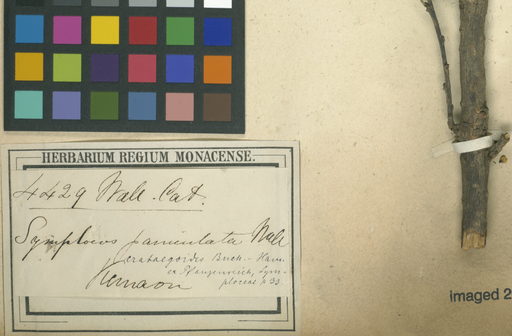 HERBARIUM REGIUM MONACENSE.
4429 Wall. Cat.
Symplocos paniculata Wall
crataegoides Buch.-Ham.
ex Wangenreich, Sym-
plocac p 33
Kemaon
imaged 2